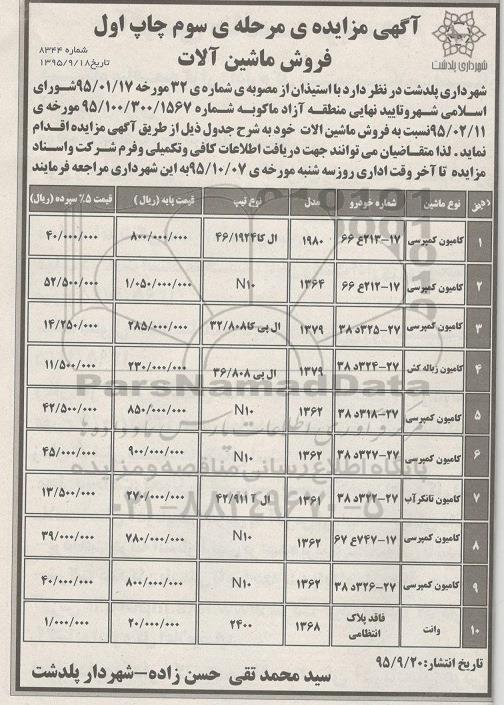 آگهی مزایده ی مرحله ی سوم چاپ اول
فروش ماشین آلات
شماره ۸۳۴۴
تاریخ ۱۳۹۵/۹/۱۸
شهرداری پلدشت
شهرداری پلدشت در نظر دارد با استیذان از مصوبه ی شماره ی ۳۲ مورخه ۹۵/۰۱/۱۷ شورای
اسلامی شهر و تایید نهایی منطقه آزاد ماکو به شماره ۹۵/۱۰۰/۳۰۰/۱۵۶۷ مورخه ی
۹۵/۰۲/۱۱ نسبت به فروش ماشین الات خود به شرح جدول ذیل از طریق آگهی مزایده اقدام
نماید . لذا متقاضیان می توانند جهت دریافت اطلاعات کافی و تکمیلی و فرم شرکت و اسناد
مزایده تا آخر وقت اداری روز سه شنبه مورخه ی ۹۵/۱۰/۰۷ به این شهرداری مراجعه فرمایند
ردیف نوع ماشین شماره خودرو مدل نوع تیپ قیمت پایه (ریال ) قیمت ۵٪ سپرده (ریال)
۱ کامیون کمپرسی ۱۷-۲۱۳ع ۶۶ ۱۹۸۰ ال کا ۴۶/۱۹۲۴ ۸۰۰/۰۰۰/۰۰۰ ۴۰/۰۰۰/۰۰۰
۲ کامیون کمپرسی ۱۷-۲۱۲ع ۶۶ ۱۳۶۴ N۱۰ ۱/۰۵۰/۰۰۰/۰۰۰ ۵۲/۵۰۰/۰۰۰
۳ کامیون کمپرسی ۲۷-۳۲۵د ۳۸ ۱۳۷۹ ال پی کا ۳۲/۸۰۸ ۲۸۵/۰۰۰/۰۰۰ ۱۴/۲۵۰/۰۰۰
۴ کامیون زباله کش ۲۷-۳۲۴د ۳۸ ۱۳۷۹ ال پی ۳۶/۸۰۸ ۲۳۰/۰۰۰/۰۰۰ ۱۱/۵۰۰/۰۰۰
۵ کامیون کمپرسی ۲۷-۳۱۸د ۳۸ ۱۳۶۲ N۱۰ ۸۵۰/۰۰۰/۰۰۰ ۴۲/۵۰۰/۰۰۰
۶ کامیون کمپرسی ۲۷-۳۲۷د ۳۸ ۱۳۶۲ N۱۰ ۹۰۰/۰۰۰/۰۰۰ ۴۵/۰۰۰/۰۰۰
۷ کامیون تانکر آب ۲۷-۳۲۲د ۳۸ ۱۳۶۱ ال آ ۴۲/۹۱۱ ۲۷۰/۰۰۰/۰۰۰ ۱۳/۵۰۰/۰۰۰
۸ کامیون کمپرسی ۱۷-۷۴۷ع ۶۷ ۱۳۶۲ N۱۰ ۷۸۰/۰۰۰/۰۰۰ ۳۹/۰۰۰/۰۰۰
۹ کامیون کمپرسی ۲۷-۳۲۶د ۳۸ ۱۳۶۲ N۱۰ ۸۰۰/۰۰۰/۰۰۰ ۴۰/۰۰۰/۰۰۰
۱۰ وانت فاقد پلاک انتظامی ۱۳۶۸ ۲۴۰۰ ۲۰/۰۰۰/۰۰۰ ۱/۰۰۰/۰۰۰
ParsNamadData
پایگاه اطلاع رسانی مناقصه و مزایده
۰۲۱-۸۸۳۴۹۶۷۰-۵
تاریخ انتشار: ۹۵/۹/۲۰
سید محمد تقی حسن زاده – شهردار پلدشت